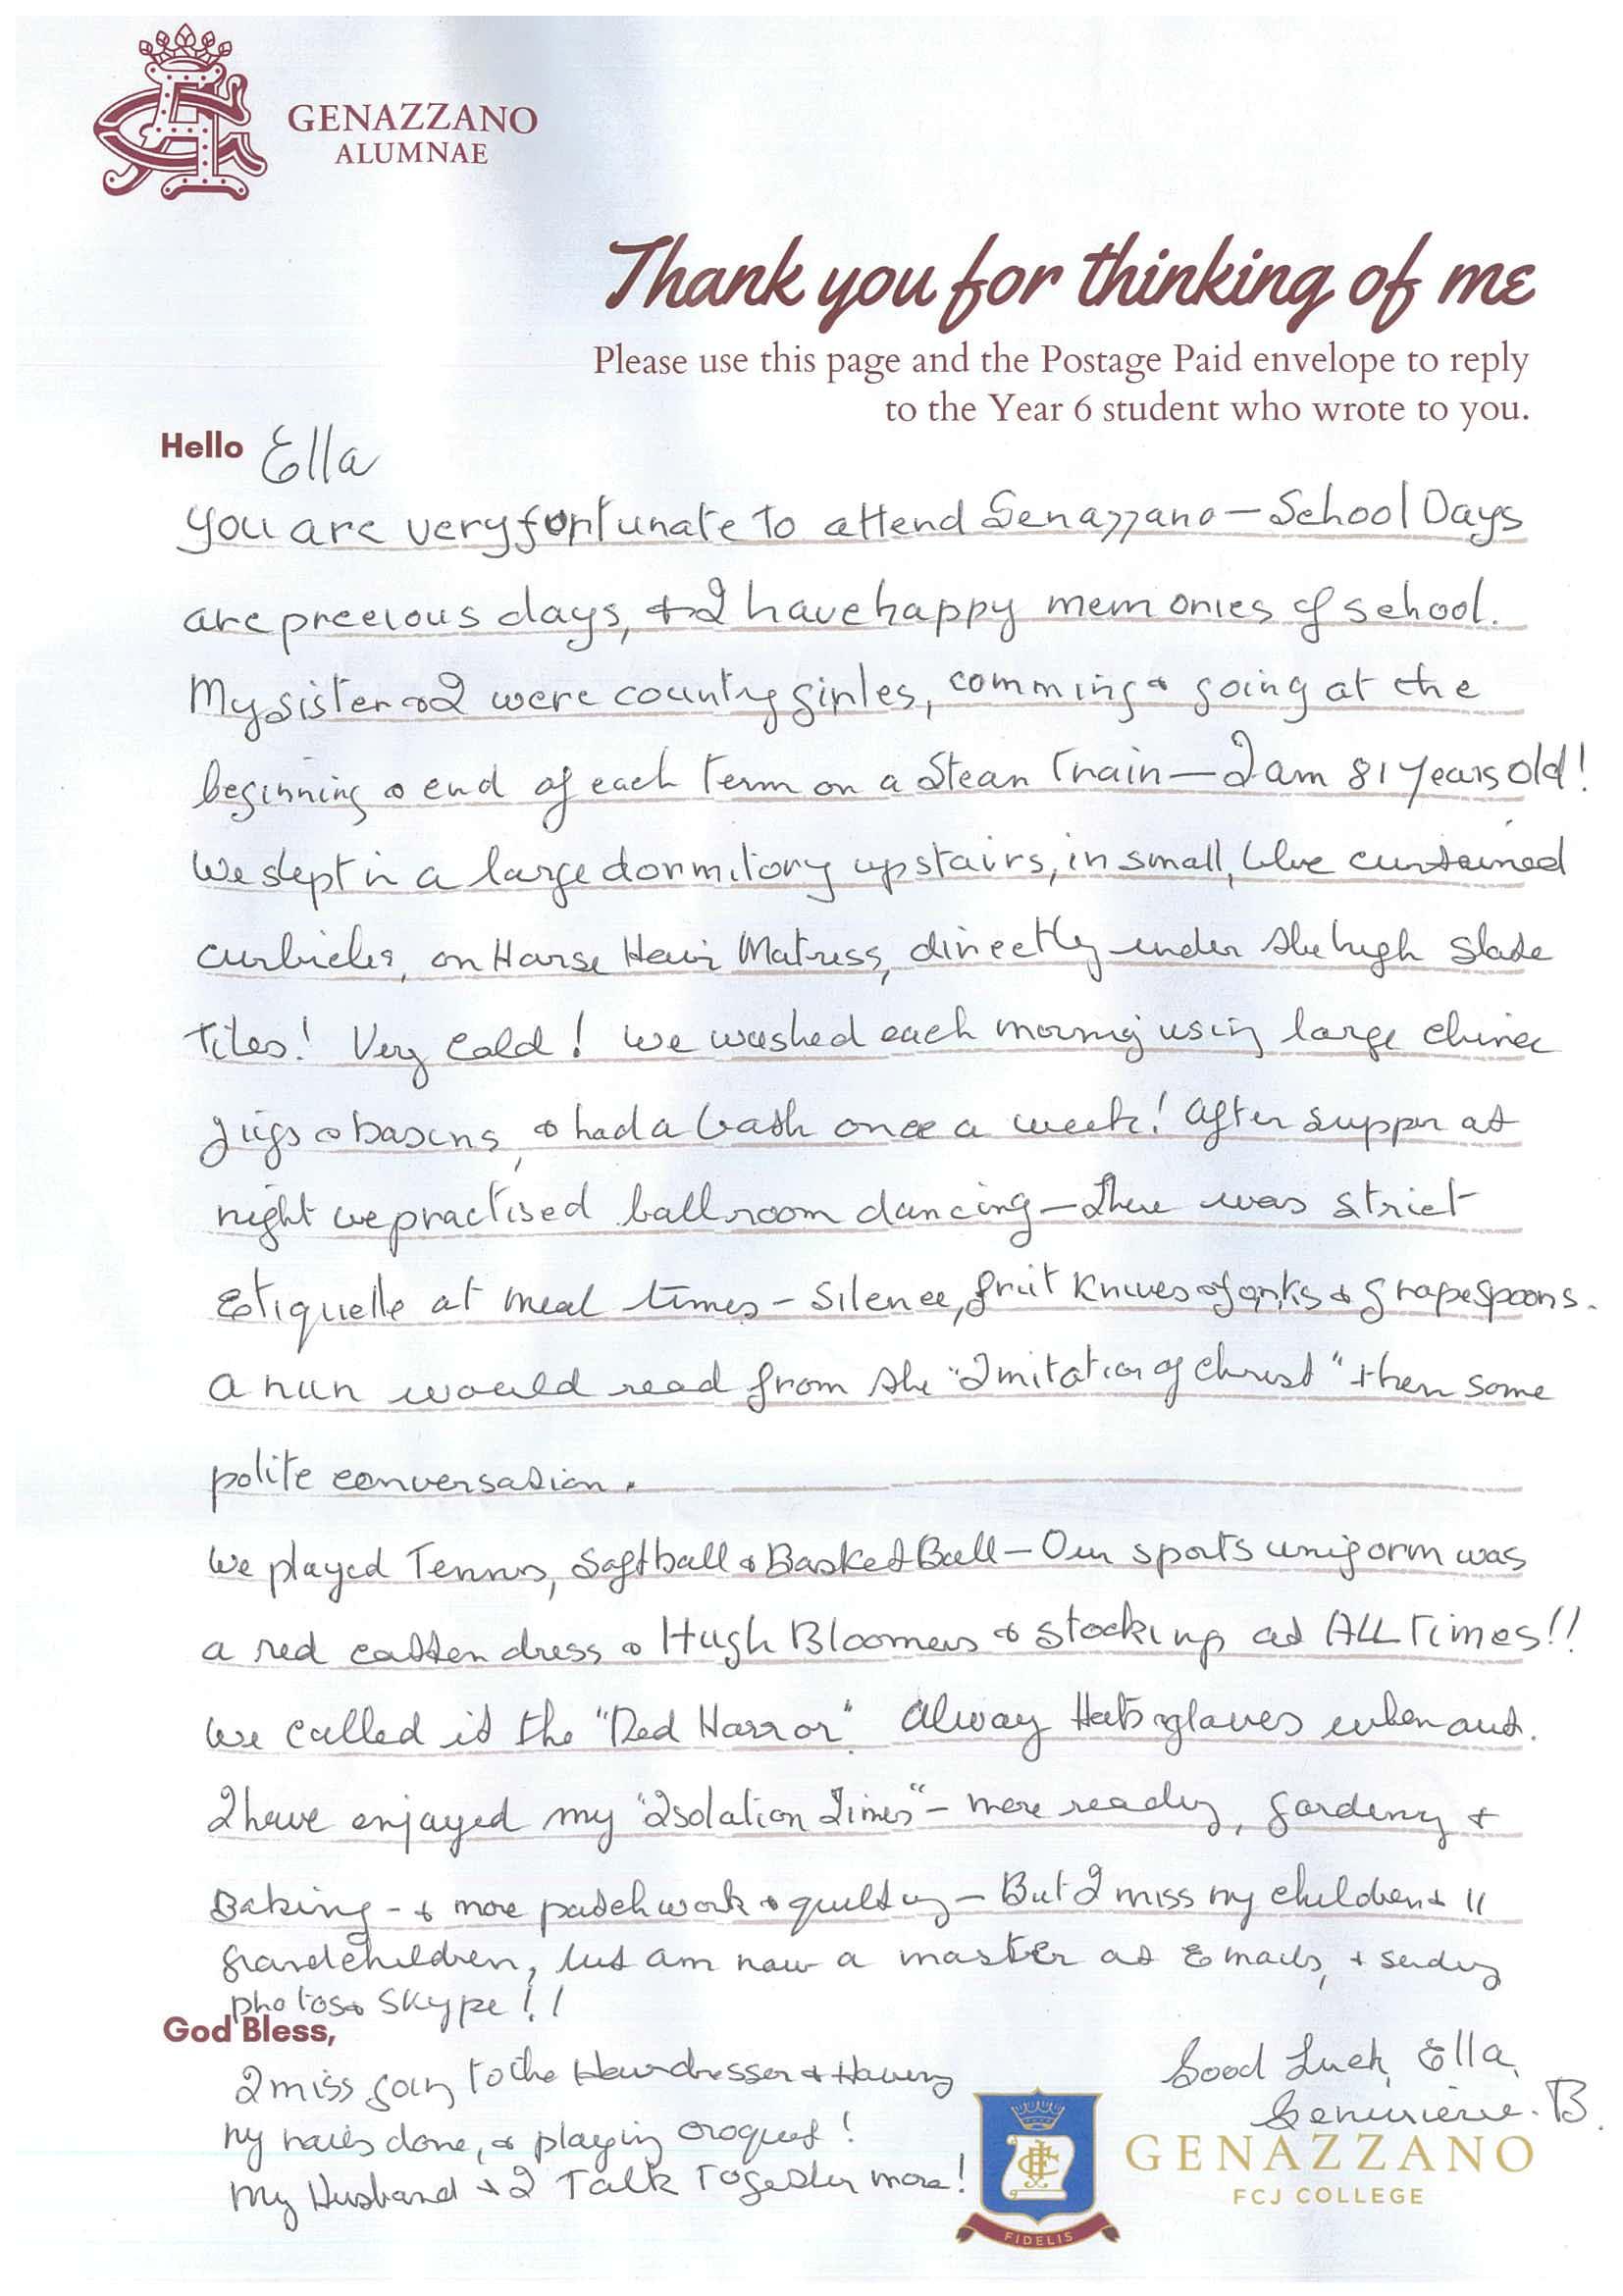 GENAZZANO
ALUMNAE
Thank you for thinking of me
Please use this page and the Postage Paid envelope to reply
to the Year 6 student who wrote to you.
Hello Ella
You are very fortunate to attend Genazzano – School Days
are precious days, & I have happy memories of school.
My sister & I were country girles, comming & going at the
beginning & end of each term on a Stean Train – I am 81 years old!
We slept in a large dormitory upstairs, in small, blue curtained
curbicles, on Horse Hair Matress, directly under the high Slate
Tiles! Very Cold! We washed each morning using large china
jugs & basins, & had a bath once a week! After supper at
night we practised ballroom dancing – there was strict
Etiquette at meal times – Silence, fruit Knives & forks & grapespoons.
A nun would read from the "Imitation of Christ" then some
polite conversation.
We played Tennis, Softball & BasketBall – Our sports uniform was
a red cotton dress & Hugh Bloomers & stockings at ALL Times!!
We called it the "Red Horror". Alway Hats & gloves when out.
I have enjoyed my "Isolation Times" – more reading, gardening &
Baking – & more patchwork & quilting – But I miss my children & 11
grandchildren, but am now a master at Emails, & sending
photos & Skype!!
God Bless,
I miss going to the Hairdresser & Having
my nails done, & playing croquet!
My Husband & I Talk Together more!
Good Luck, Ella,
Genevieve. B.
FIDELIS
GENAZZANO
FCJ COLLEGE